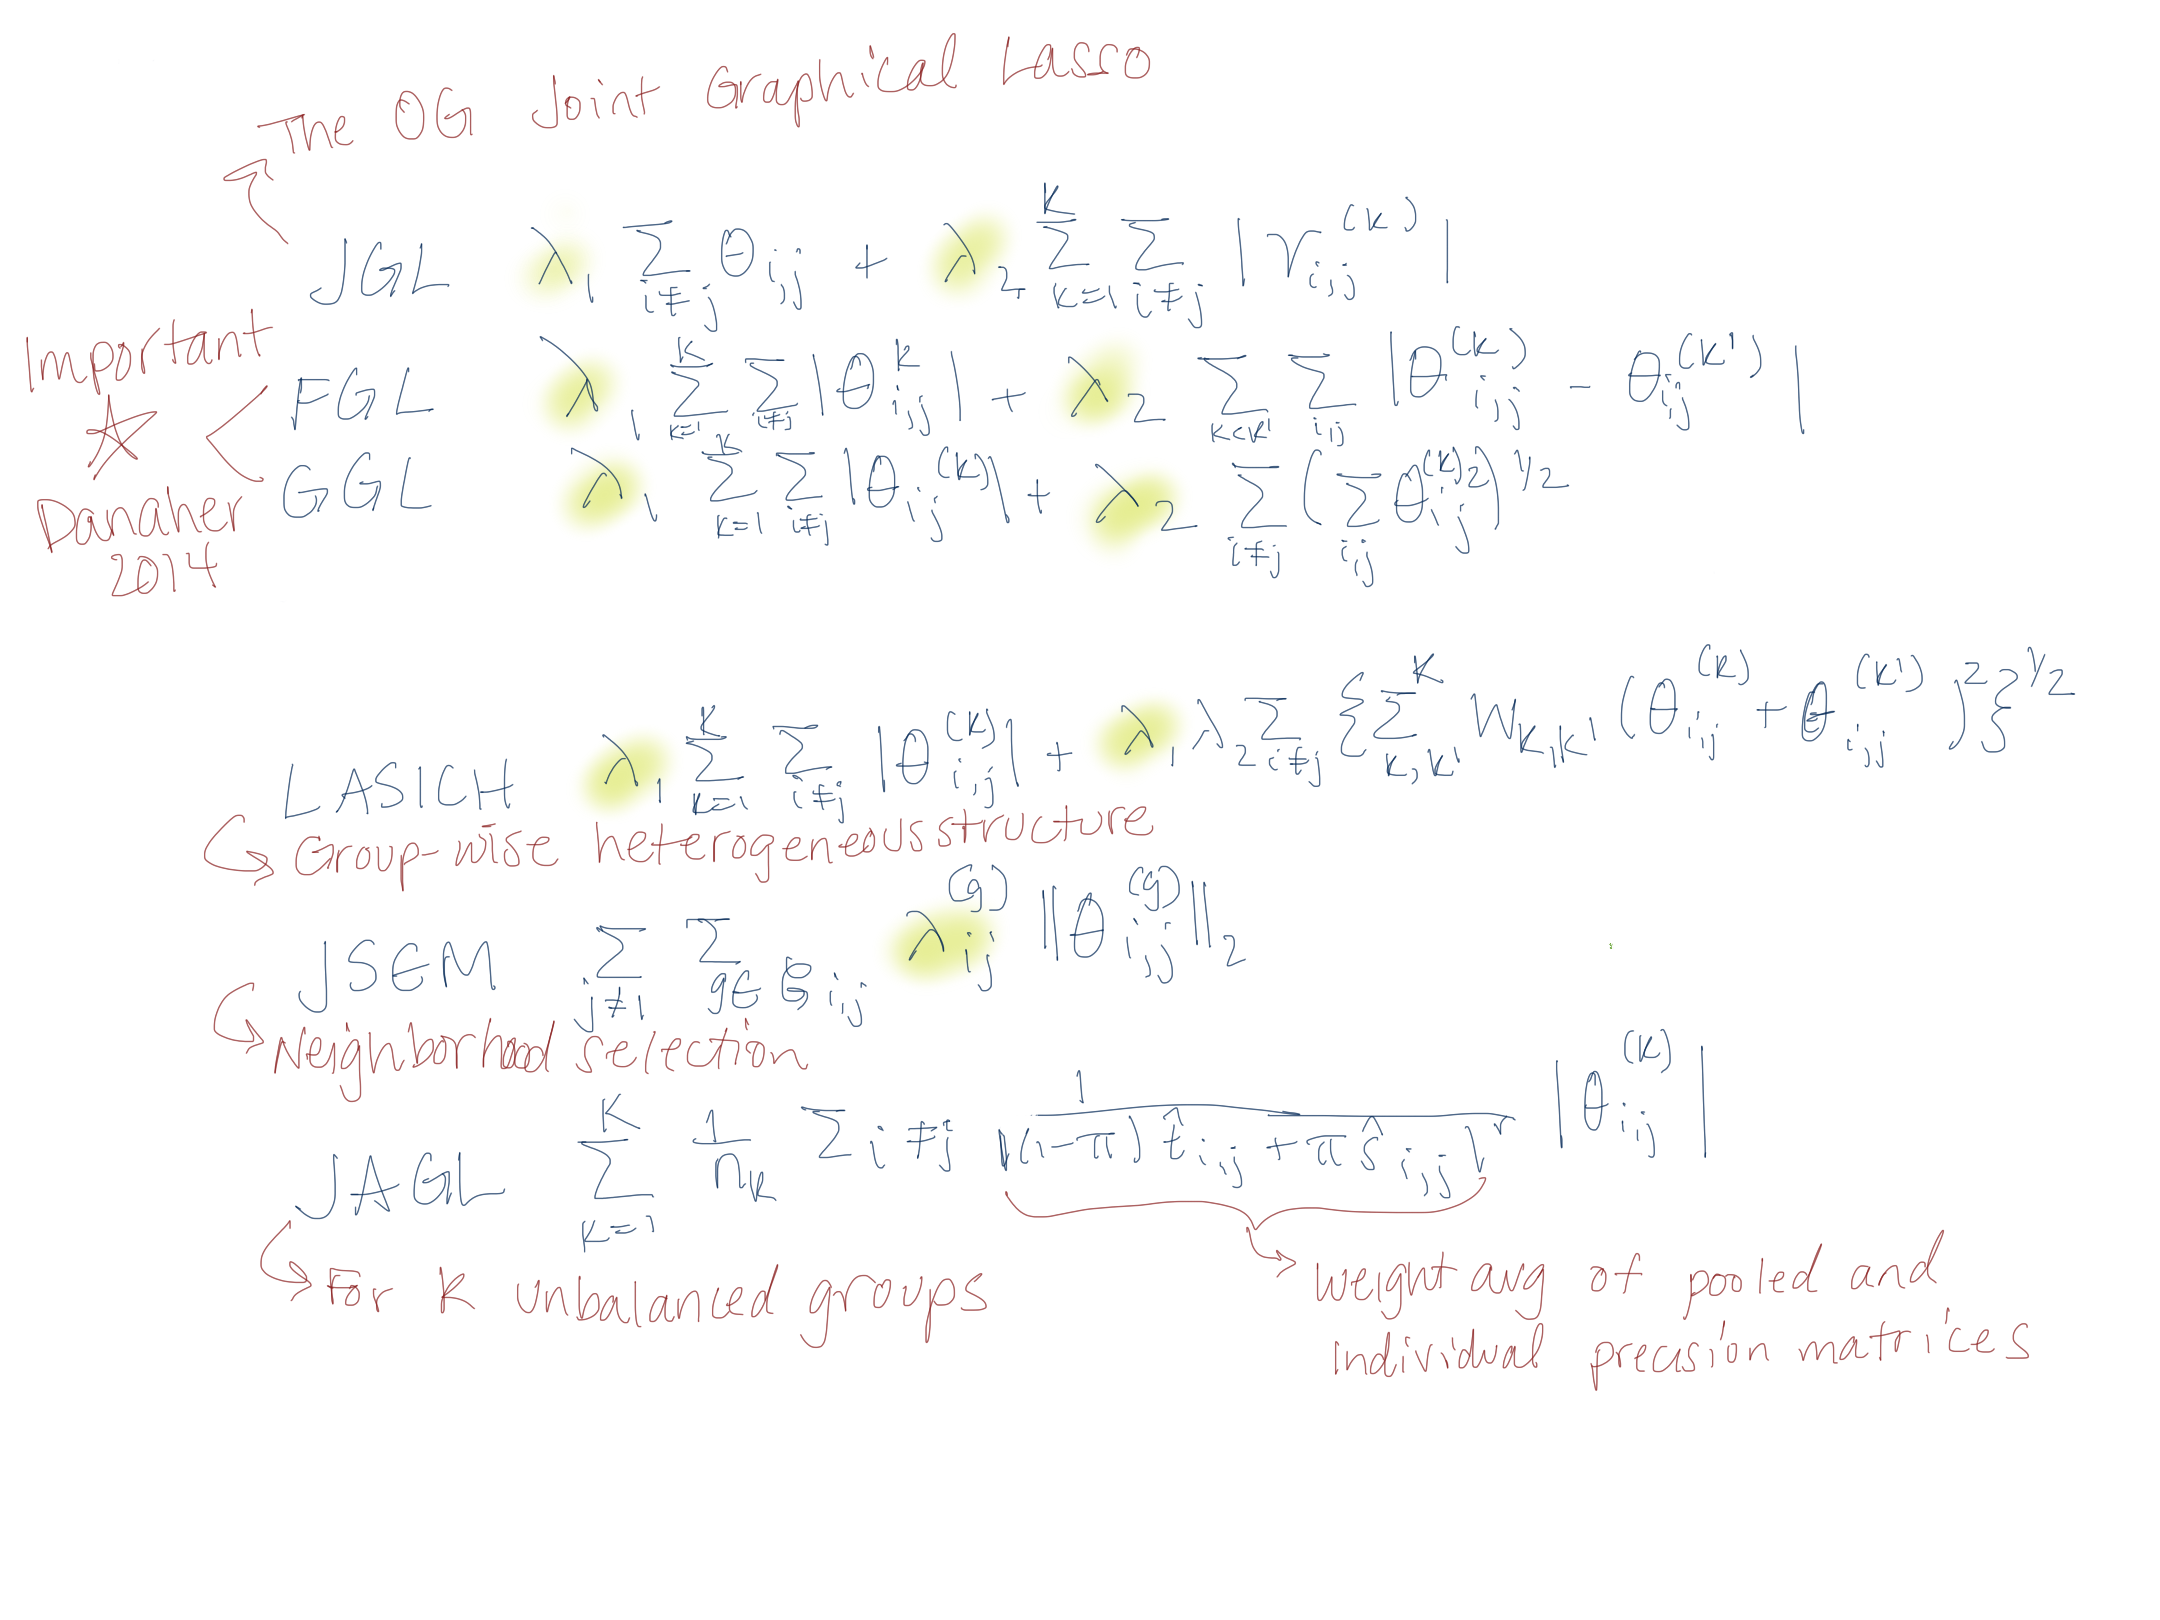 The OG Joint Graphical Lasso
JGL λ₁ Σ_{i≠j} θ_{i,j} + λ₂ Σ_{k=1}^{K} Σ_{i≠j} |γ_{i,j}^{(k)}|
Important
FGL λ₁ Σ_{k=1}^{K} Σ_{i≠j} |θ_{i,j}^{k}| + λ₂ Σ_{k<k'} Σ_{i,j} |θ_{i,j}^{(k)} - θ_{i,j}^{(k')}|
GGL λ₁ Σ_{k=1}^{K} Σ_{i≠j} |θ_{i,j}^{(k)}| + λ₂ Σ_{i≠j} (Σ_{i,j} θ_{i,j}^{(k)2})^{1/2}
Danaher
2014
LASICH λ₁ Σ_{k=1}^{K} Σ_{i≠j} |θ_{i,j}^{(k)}| + λ₁ λ₂ Σ_{i≠j} {Σ_{k,k'}^{K} W_{k,k'} (θ_{i,j}^{(k)} + θ_{i,j}^{(k')})²}^{1/2}
Group-wise heterogeneous structure
JSEM Σ_{j≠1} Σ_{g∈G_{i,j}} λ_{ij}^{(g)} ||θ_{i,j}^{(g)}||₂
Neighborhood selection
JAGL Σ_{k=1}^{K} 1/n_k Σ i≠j 1/|(1-π) t̂_{i,j} + π ŝ_{i,j}|^r |θ_{i,j}^{(k)}|
For K unbalanced groups
weight avg of pooled and
individual precision matrices